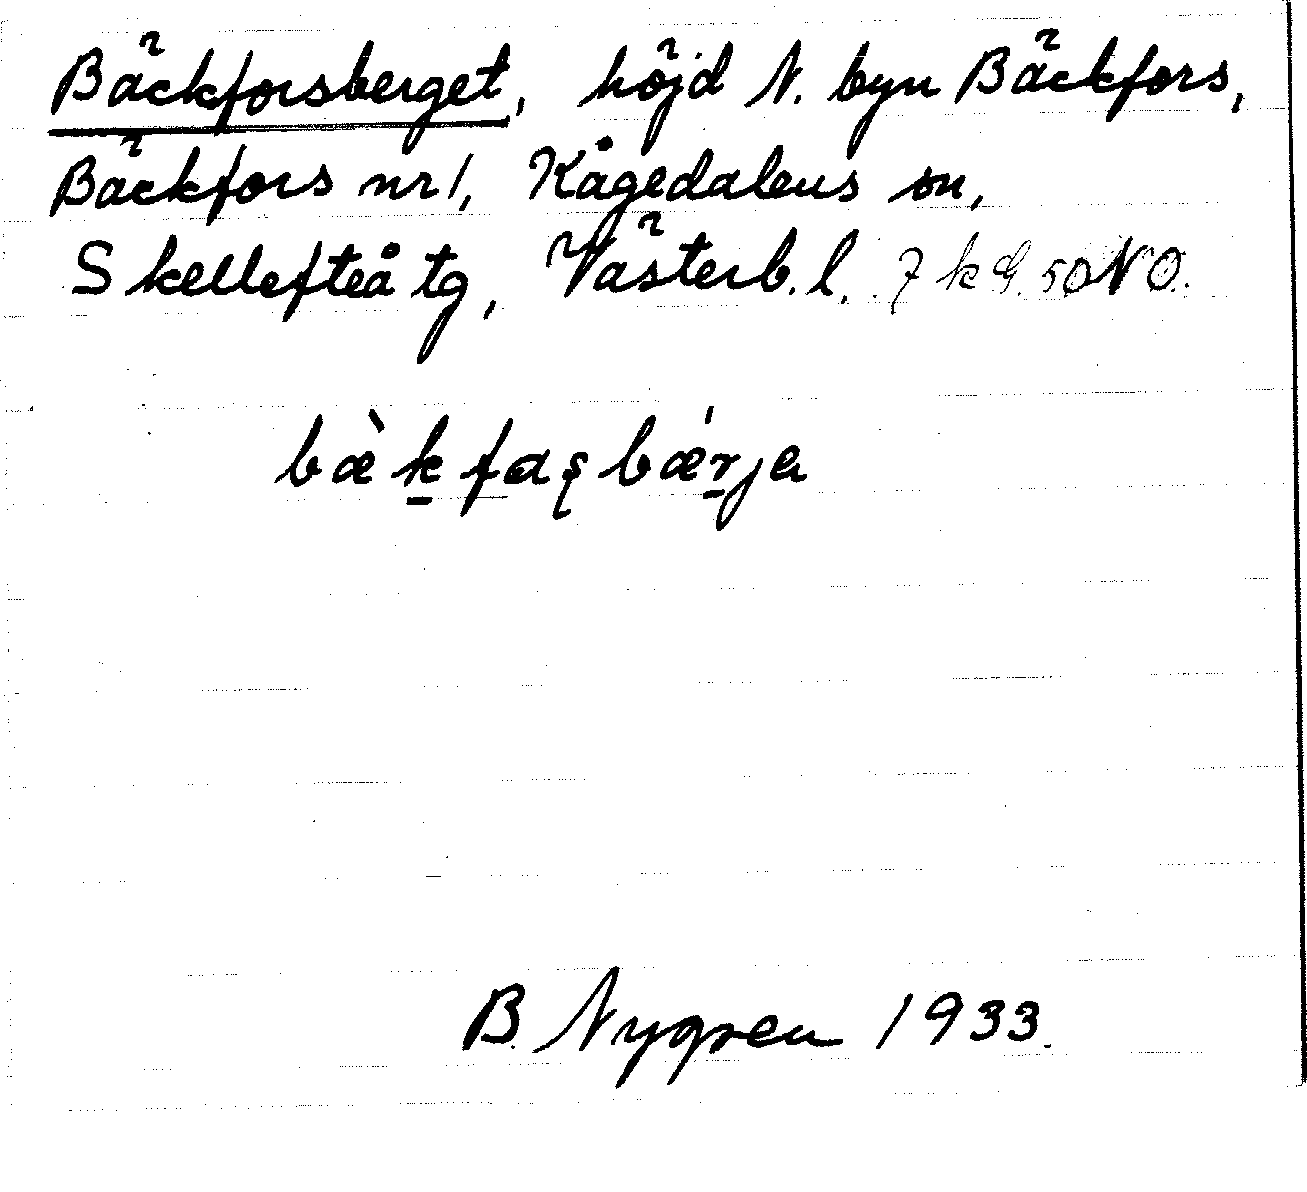 Bäckforsberget, höjd N. byn Bäckfors,
Bäckfors nr 1, Kågedalens sn,
Skellefteå tg, Västerb. l. 7 k d 50 NO.
bæ̀k̲fɑʂbǽr̲ja
B. Nygren 1933.